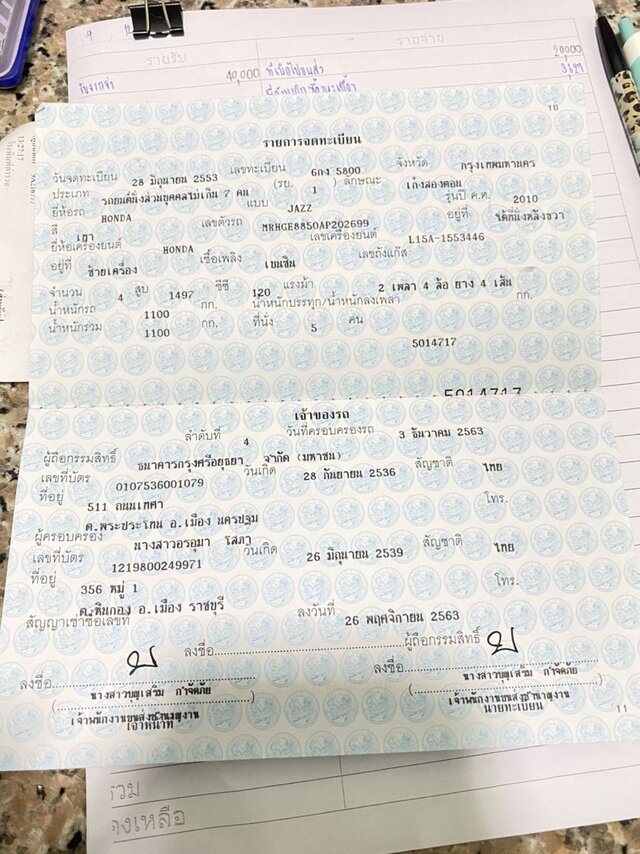 รายรับ รายจ่าย
40,000
20,000
10
รายการจดทะเบียน
วันจดทะเบียน 28 มิถุนายน 2553 เลขทะเบียน 6กง 5800 จังหวัด กรุงเทพมหานคร
ประเภท รถยนต์นั่งส่วนบุคคลไม่เกิน 7 คน (รย. 1 ) ลักษณะ เก๋งสองตอน
ยี่ห้อรถ HONDA แบบ JAZZ รุ่นปี ค.ศ. 2010
สี เทา เลขตัวรถ MRHGE8850AP202699 อยู่ที่ ใต้ที่นั่งหลังขวา
ยี่ห้อเครื่องยนต์ HONDA เลขเครื่องยนต์ L15A-1553446
อยู่ที่ ซ้ายเครื่อง เชื้อเพลิง เบนซิน เลขถังแก๊ส
จำนวน 4 สูบ 1497 ซีซี 120 แรงม้า 2 เพลา 4 ล้อ ยาง 4 เส้น
น้ำหนักรถ 1100 กก. น้ำหนักบรรทุก/น้ำหนักลงเพลา กก.
น้ำหนักรวม 1100 กก. ที่นั่ง 5 คน
5014717
5014717
เจ้าของรถ
ลำดับที่ 4 วันที่ครอบครองรถ 3 ธันวาคม 2563
ผู้ถือกรรมสิทธิ์ ธนาคารกรุงศรีอยุธยา จำกัด (มหาชน)
เลขที่บัตร 0107536001079 วันเกิด 28 กันยายน 2536 สัญชาติ ไทย
ที่อยู่ 511 ถนนเทศา โทร.
ต.พระประโทน อ.เมือง นครปฐม
ผู้ครอบครอง นางสาวอรอุมา โสภา
เลขที่บัตร 1219800249971 วันเกิด 26 มิถุนายน 2539 สัญชาติ ไทย
ที่อยู่ 356 หมู่ 1 โทร.
ต.หินกอง อ.เมือง ราชบุรี
สัญญาเช่าซื้อเลขที่ ลงวันที่ 26 พฤศจิกายน 2563
ลงชื่อ ผู้ถือกรรมสิทธิ์
ลงชื่อ ลงชื่อ
( นางสาวบุญเสริม กำจัดภัย ) ( นางสาวบุญเสริม กำจัดภัย )
เจ้าพนักงานขนส่งชำนาญงาน เจ้าพนักงานขนส่งชำนาญงาน
เจ้าหน้าที่ นายทะเบียน
11
รวม
คงเหลือ